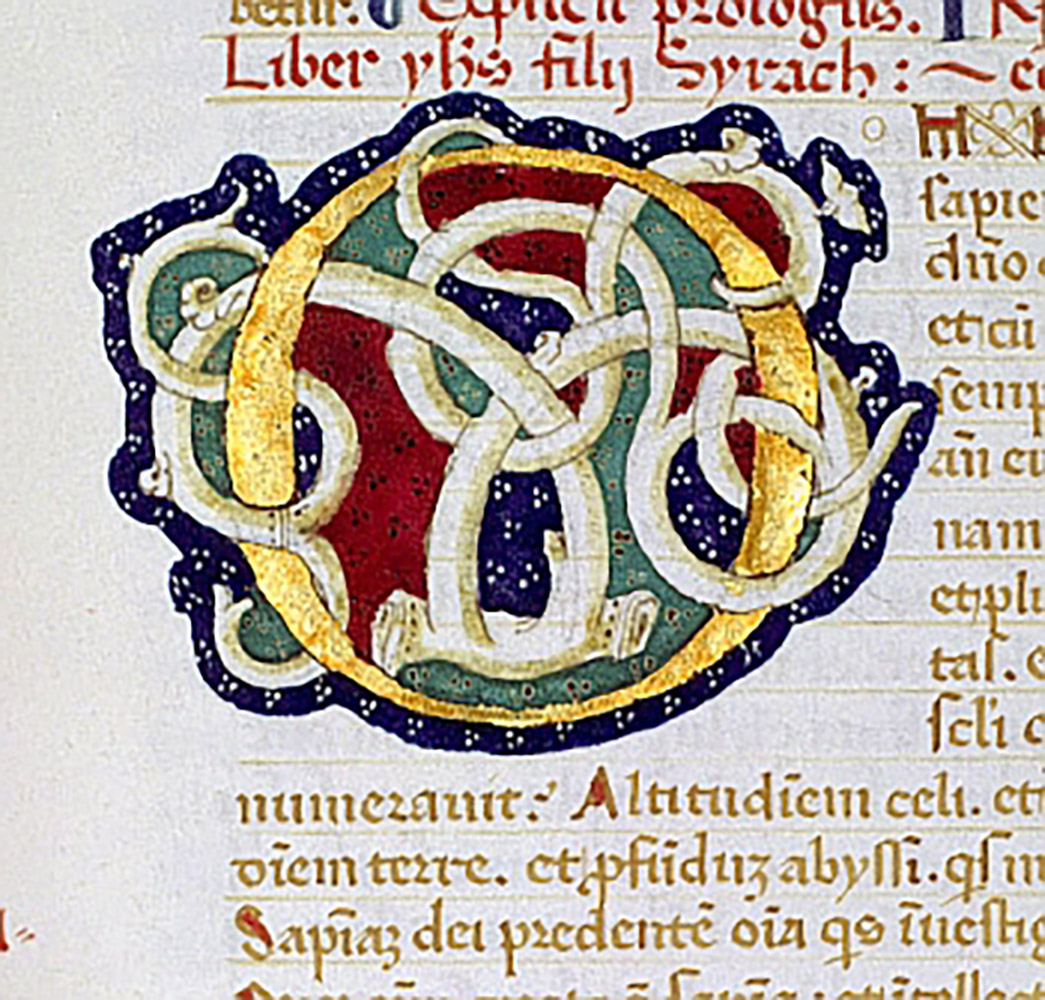 betur. Explicit prologus.
Liber yhs filij Syrach :
O m
sapie
dño
et cū
semp
añ
nam
et plu
tas. e
scli c
numerauit: Altitudiem celi. et
diem terre. et pfūduz abyssi. qs in
Sapiaz dei predentē oīa qs īuestig